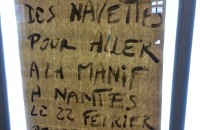 DES NAVETTES
POUR ALLER
A LA MANIF
A NANTES
LE 22 FÉVRIER